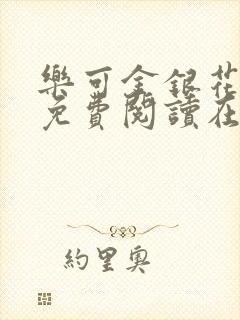 樂可金銀花
免費閱讀在
約里奧